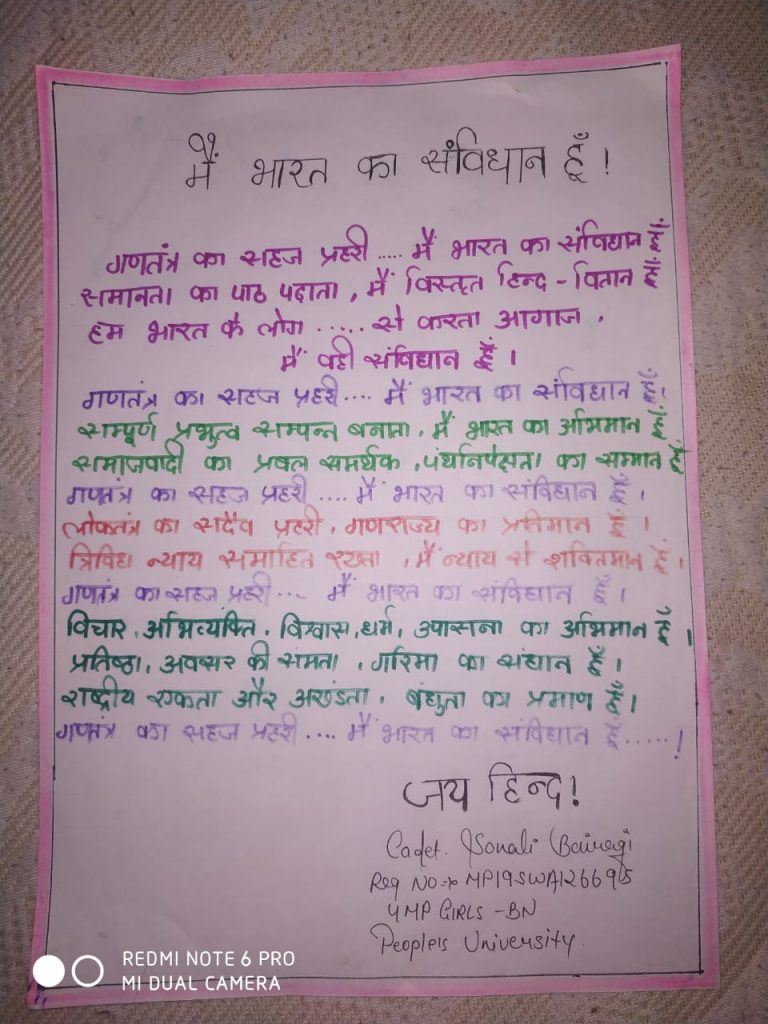 मैं भारत का संविधान हूँ!
गणतंत्र का सहज प्रहरी .... मैं भारत का संविधान हूँ
समानता का पाठ पढ़ाता, मैं विस्तृत हिन्द - वितान हूँ
हम भारत के लोग ..... से करता आगाज,
मैं वही संविधान हूँ।
गणतंत्र का सहज प्रहरी .... मैं भारत का संविधान हूँ।
सम्पूर्ण प्रभुत्व सम्पन्न बनाता, मैं भारत का अभिमान हूँ
समाजवादी का प्रबल समर्थक, पंथनिपेक्षता का सम्मान हूँ
गणतंत्र का सहज प्रहरी .... मैं भारत का संविधान हूँ।
लोकतंत्र का सदैव प्रहरी, गणराज्य का प्रतिमान हूँ।
त्रिविध न्याय समाहित रखता, मैं न्याय से शक्तिमान हूँ।
गणतंत्र का सहज प्रहरी ... मैं भारत का संविधान हूँ।
विचार, अभिव्यक्ति, विश्वास, धर्म, उपासना का अभिमान हूँ।
प्रतिष्ठा, अवसर की समता, गरिमा का संधान हूँ।
राष्ट्रीय एकता और अखंडता, बंधुता का प्रमाण हूँ।
गणतंत्र का सहज प्रहरी .... मैं भारत का संविधान हूँ.....!
जय हिन्द!
Cadet. Sonali Bairagi
Reg No:-
4MP GIRLS - BN
People's University.
REDMI NOTE 6 PRO
MI DUAL CAMERA